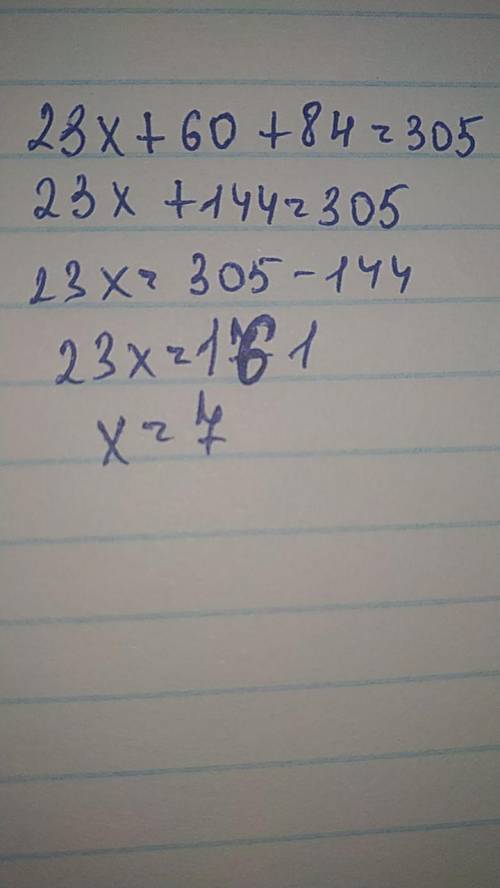 23x + 60 + 84 = 305
23x + 144 = 305
23x = 305 - 144
23x = 161
x = 7